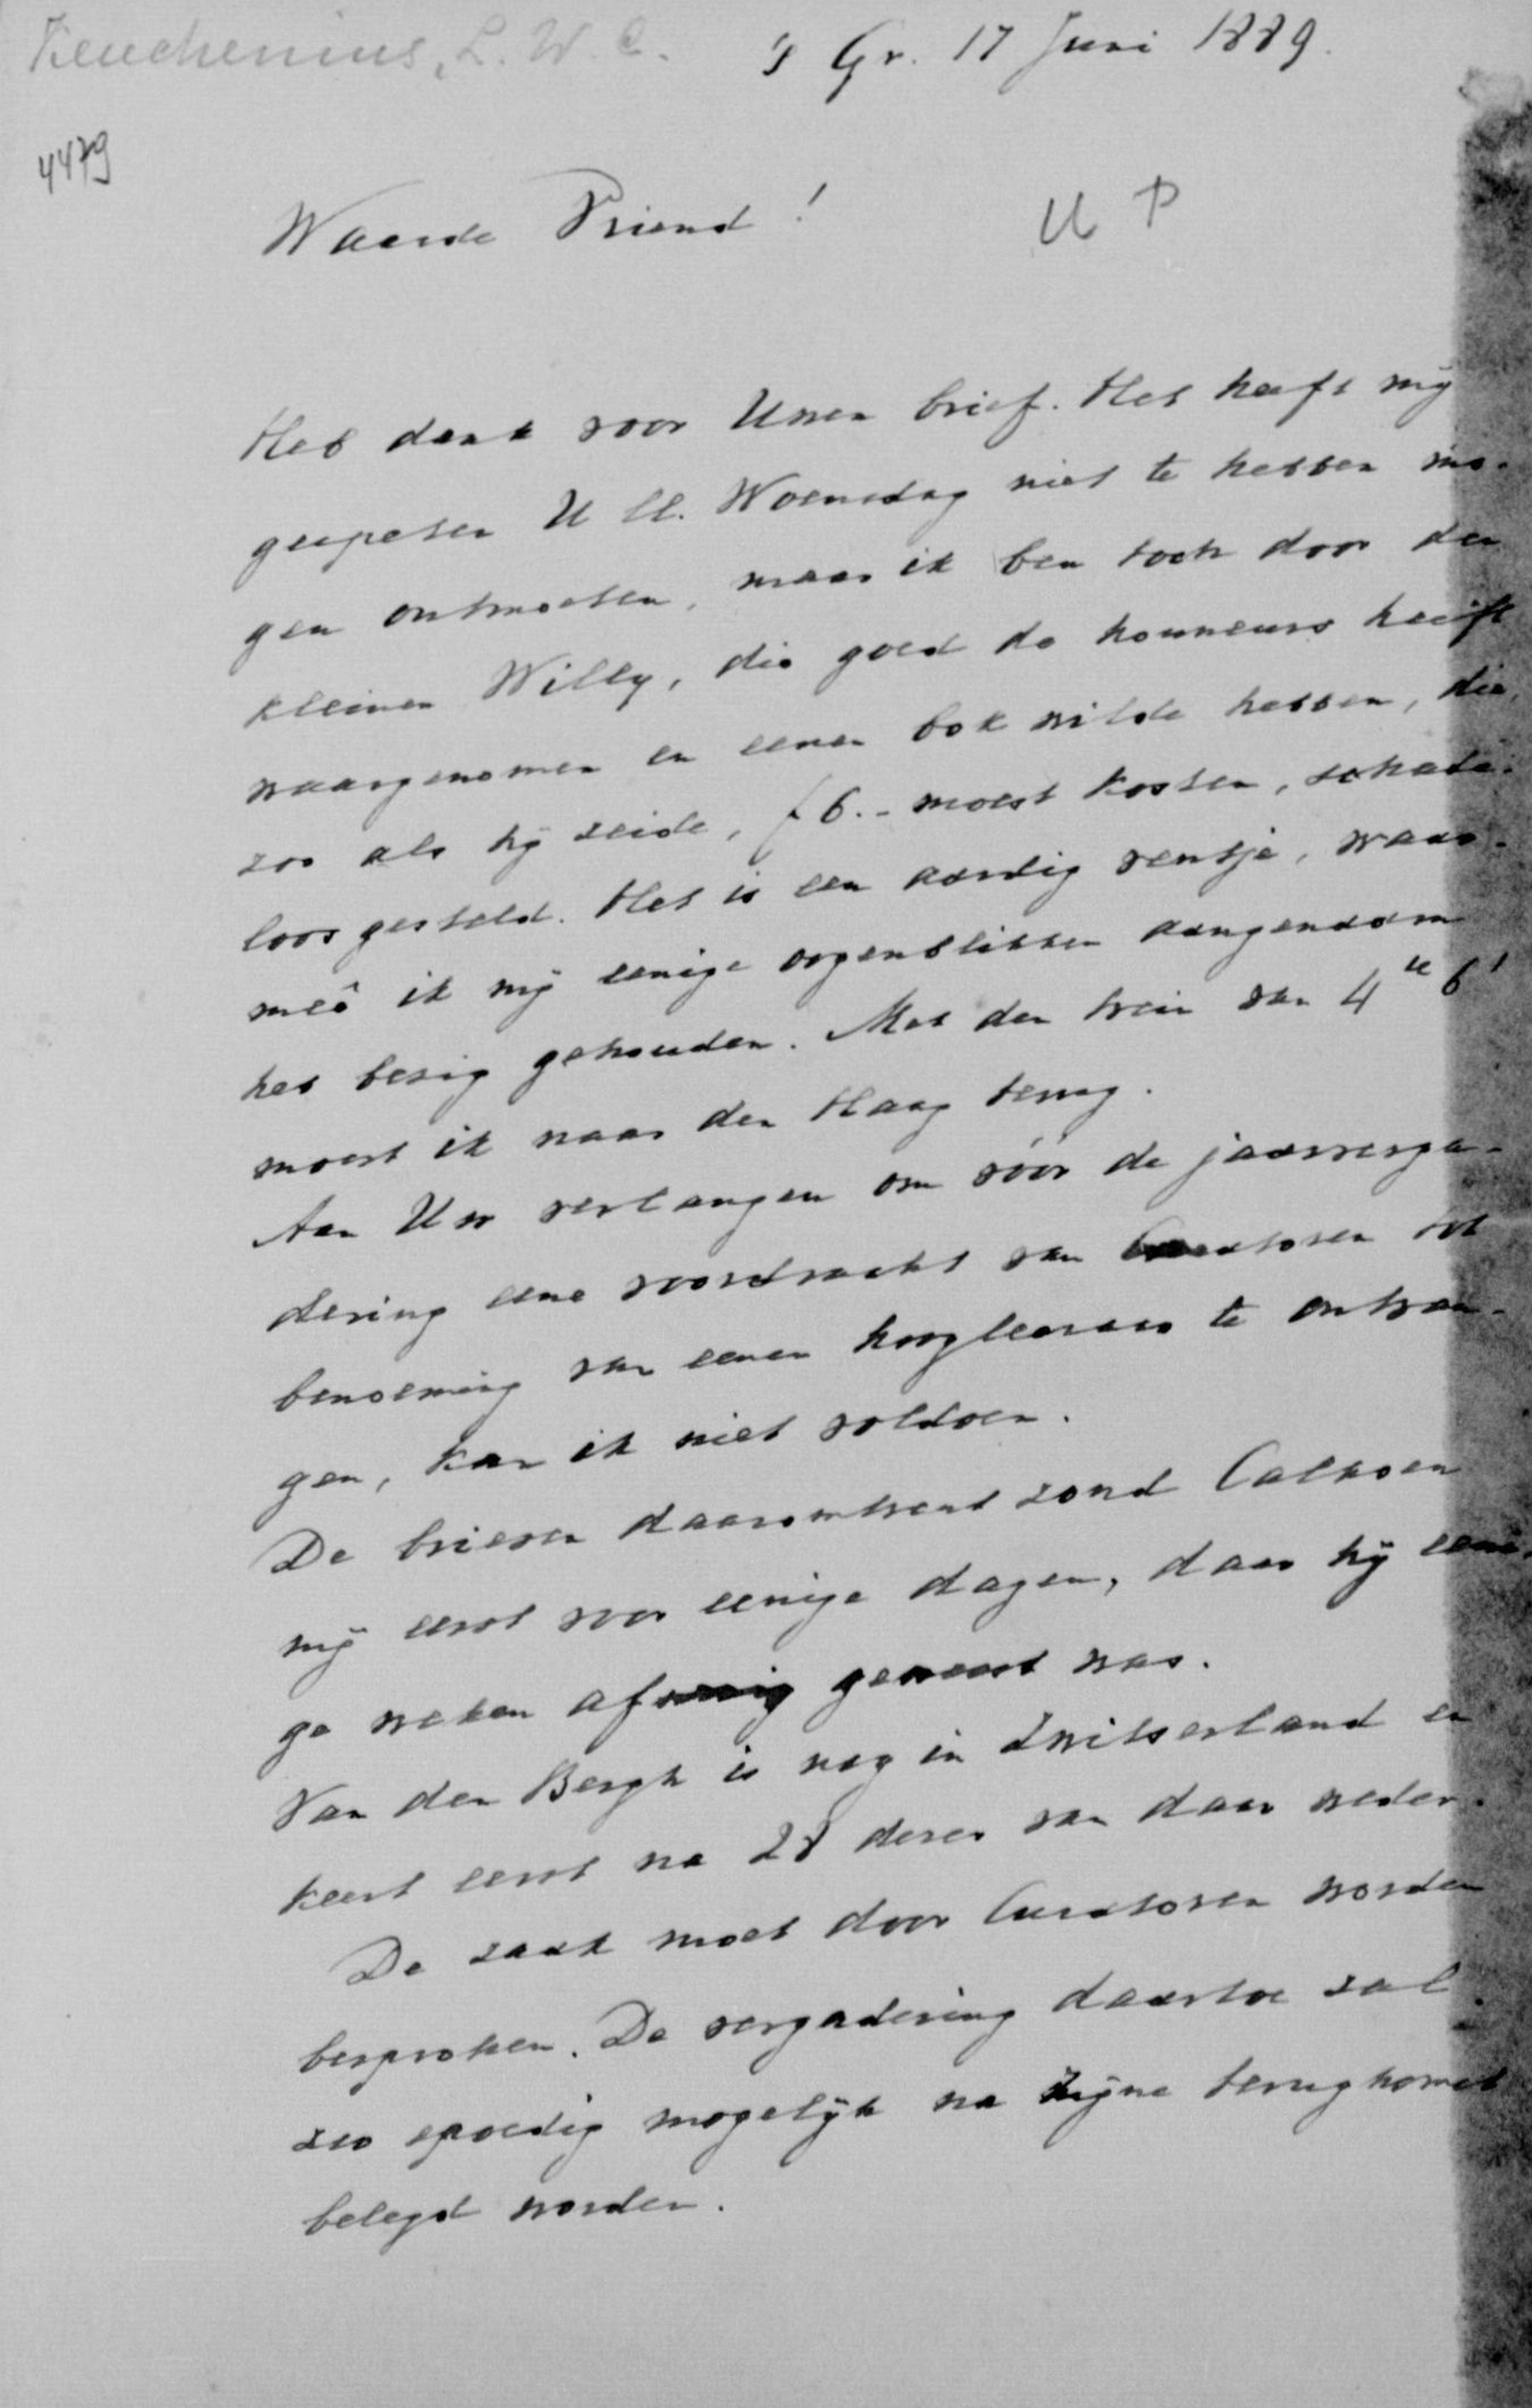 Keuchenius, L. W. C.
's Gr. 17 Juni 1889.
4479
Waarde Vriend!
U P
Heb dank voor Uwen brief. Het heeft mij
gespeten U ll. Woensdag niet te hebben mo-
gen ontmoeten, maar ik ben toch door den
kleinen Willy, die goed de honneurs heeft
waargenomen en eenen bok wilde hebben, die,
zoo als hij zeide, f 6.- moest kosten, schade-
loos gesteld. Het is een aardig ventje, waar-
meê ik mij eenige oogenblikken aangenaam
heb bezig gehouden. Met den trein van 4 u 6'
moest ik naar den Haag terug.
Aan Uw verlangen om vóór de jaarverga-
dering eene voordracht van Curatoren tot
benoeming van eenen hoogleeraar te ontvan-
gen, kan ik niet voldoen.
De brieven daaromtrent zond Calkoen
mij eerst voor eenige dagen, daar hij eeni-
ge weken af geweest was.
Van den Bergh is nog in Zwitserland en
keert eerst na 28 dezer van daar weder.
De zaak moet door Curatoren worden
besproken. De vergadering daartoe zal
zoo spoedig mogelijk na zijne terugkomst
belegd worden.